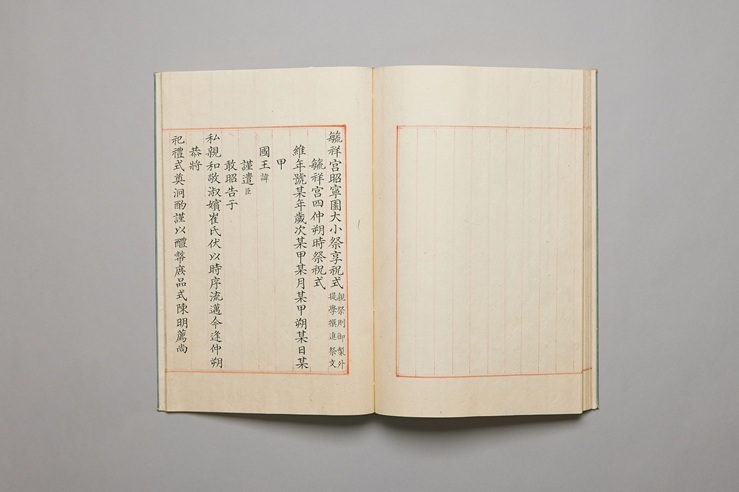 毓祥宮昭寧園大小祭享祝式 親祭則御製外提學撰進祭文
毓祥宮四仲朔時祭祝式
維年號某年歲次某甲某月某甲朔某日某
甲
國王諱
謹遣臣
敢昭告于
私親和敬淑嬪崔氏伏以時序流邁今逢仲朔
恭將
祀禮式奠泂酌謹以醴幣庶品式陳明薦尙